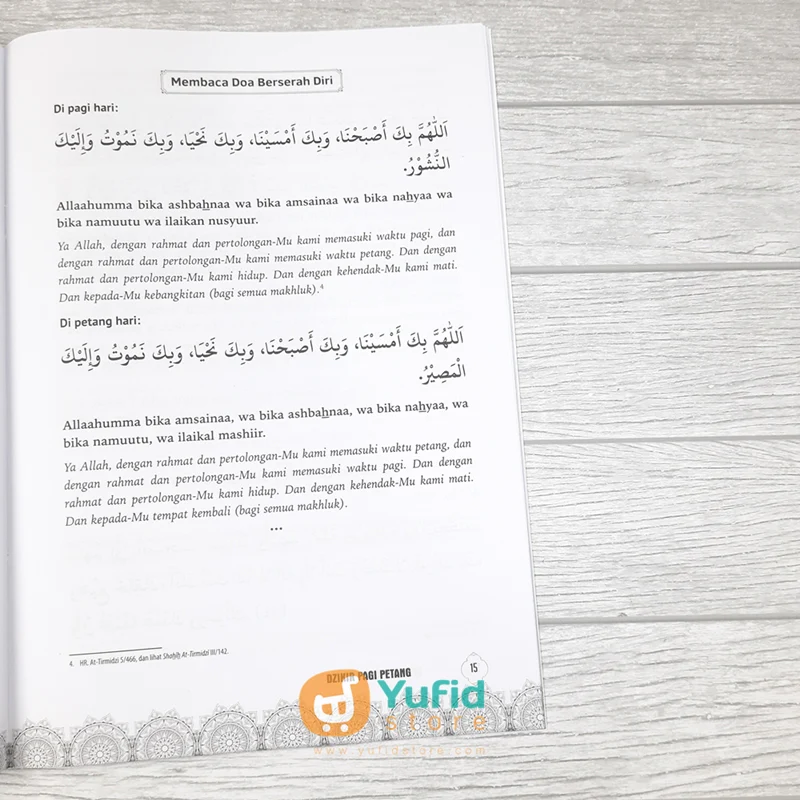 Membaca Doa Berserah Diri
Di pagi hari:
اَللّٰهُمَّ بِكَ أَصْبَحْنَا، وَبِكَ أَمْسَيْنَا، وَبِكَ نَحْيَا، وَبِكَ نَمُوْتُ وَإِلَيْكَ
النُّشُوْرُ.
Allaahumma bika ashbahnaa wa bika amsainaa wa bika nahyaa wa
bika namuutu wa ilaikan nusyuur.
Ya Allah, dengan rahmat dan pertolongan-Mu kami memasuki waktu pagi, dan
dengan rahmat dan pertolongan-Mu kami memasuki waktu petang. Dan dengan
rahmat dan pertolongan-Mu kami hidup. Dan dengan kehendak-Mu kami mati.
Dan kepada-Mu kebangkitan (bagi semua makhluk).⁴
Di petang hari:
اَللّٰهُمَّ بِكَ أَمْسَيْنَا، وَبِكَ أَصْبَحْنَا، وَبِكَ نَحْيَا، وَبِكَ نَمُوْتُ وَإِلَيْكَ
الْمَصِيْرُ.
Allaahumma bika amsainaa, wa bika ashbahnaa, wa bika nahyaa, wa
bika namuutu, wa ilaikal mashiir.
Ya Allah, dengan rahmat dan pertolongan-Mu kami memasuki waktu petang, dan
dengan rahmat dan pertolongan-Mu kami memasuki waktu pagi. Dan dengan
rahmat dan pertolongan-Mu kami hidup. Dan dengan kehendak-Mu kami mati.
Dan kepada-Mu tempat kembali (bagi semua makhluk).
...
4. HR. At-Tirmidzi 5/466, dan lihat Shahih At-Tirmidzi III/142.
DZIKIR PAGI PETANG 15
Yufid
store
www.yufidstore.com